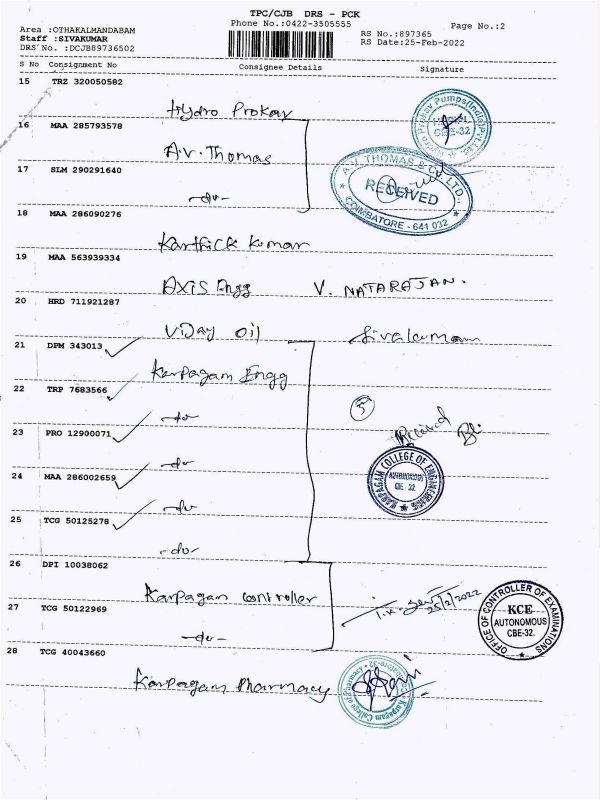 TPC/CJB DRS - PCK
Phone No.:0422-3505555
Page No.:2
Area :OTHAKALMANDABAM
Staff :SIVAKUMAR
DRS No. :DCJB89736502
RS No.:897365
RS Date:25-Feb-2022
S No Consignment No Consignee Details Signature
15 TRZ 320050582
Hydro Prokav
16 MAA 285793578
A.V. Thomas
17 SLM 290291640
-do-
A.V. THOMAS & CO. LTD.,
RECEIVED
COIMBATORE - 641 032
18 MAA 286090276
Karthick Kumar
19 MAA 563939334
Axis Engg V. NATARAJAN.
20 HRD 711921287
Uday Oil Sivakumar
21 DPM 343013
Karpagam Engg
22 TRP 7683566
-do-
5
23 PRO 12900071
-do-
Received
24 MAA 286002659
-do-
KARPAGAM COLLEGE OF ENGINEERING
AUTONOMOUS
CBE-32
25 TCG 50125278
-do-
26 DPI 10038062
Karpagam Controller
25/2/2022
27 TCG 50122969
-do-
OFFICE OF CONTROLLER OF EXAMINATIONS
KCE
AUTONOMOUS
CBE-32.
28 TCG 40043660
Karpagam Pharmacy
Karpagam College of Pharmacy